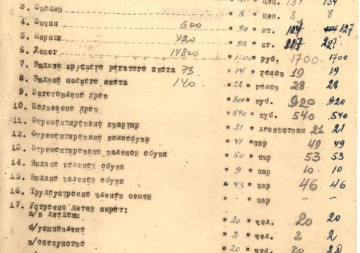 3. Овощей " 154 цен. 137 154
" 8 " 8 8
4. Овчин 600 " 90 шт. 127
5. Шерсти 420 " 95 кг. 227
6. Денег 14800 " 1700 руб. 1700 1700
7. Выдано крупного рогатого скота 73 " 14 голов 19 19
8. Выдано мелкого скота 140 " 21 голов 28 28
9. Заготовлено дров " 800 куб. 920 920
10. Подвезено дров " 540 куб. 540 540
11. Отремонтировано квартир " 21 хозяйствам 21 21
12. Отремонтировано кожобуви " 41 пар 49 49
13. Отремонтировано валеной обуви " 50 пар 53 53
14. Выдано кожаной обуви " 9 пар 10 10
15. Выдано валеной обуви " 43 пар 46 46
16. Трудоустроено членов семей " пар
17. Устроено детей сирот:
а/в детдом: " 20 чел. 20 20
б/усыновлено " 2 чел. 2 2
в/опекунство " 20 чел. 20